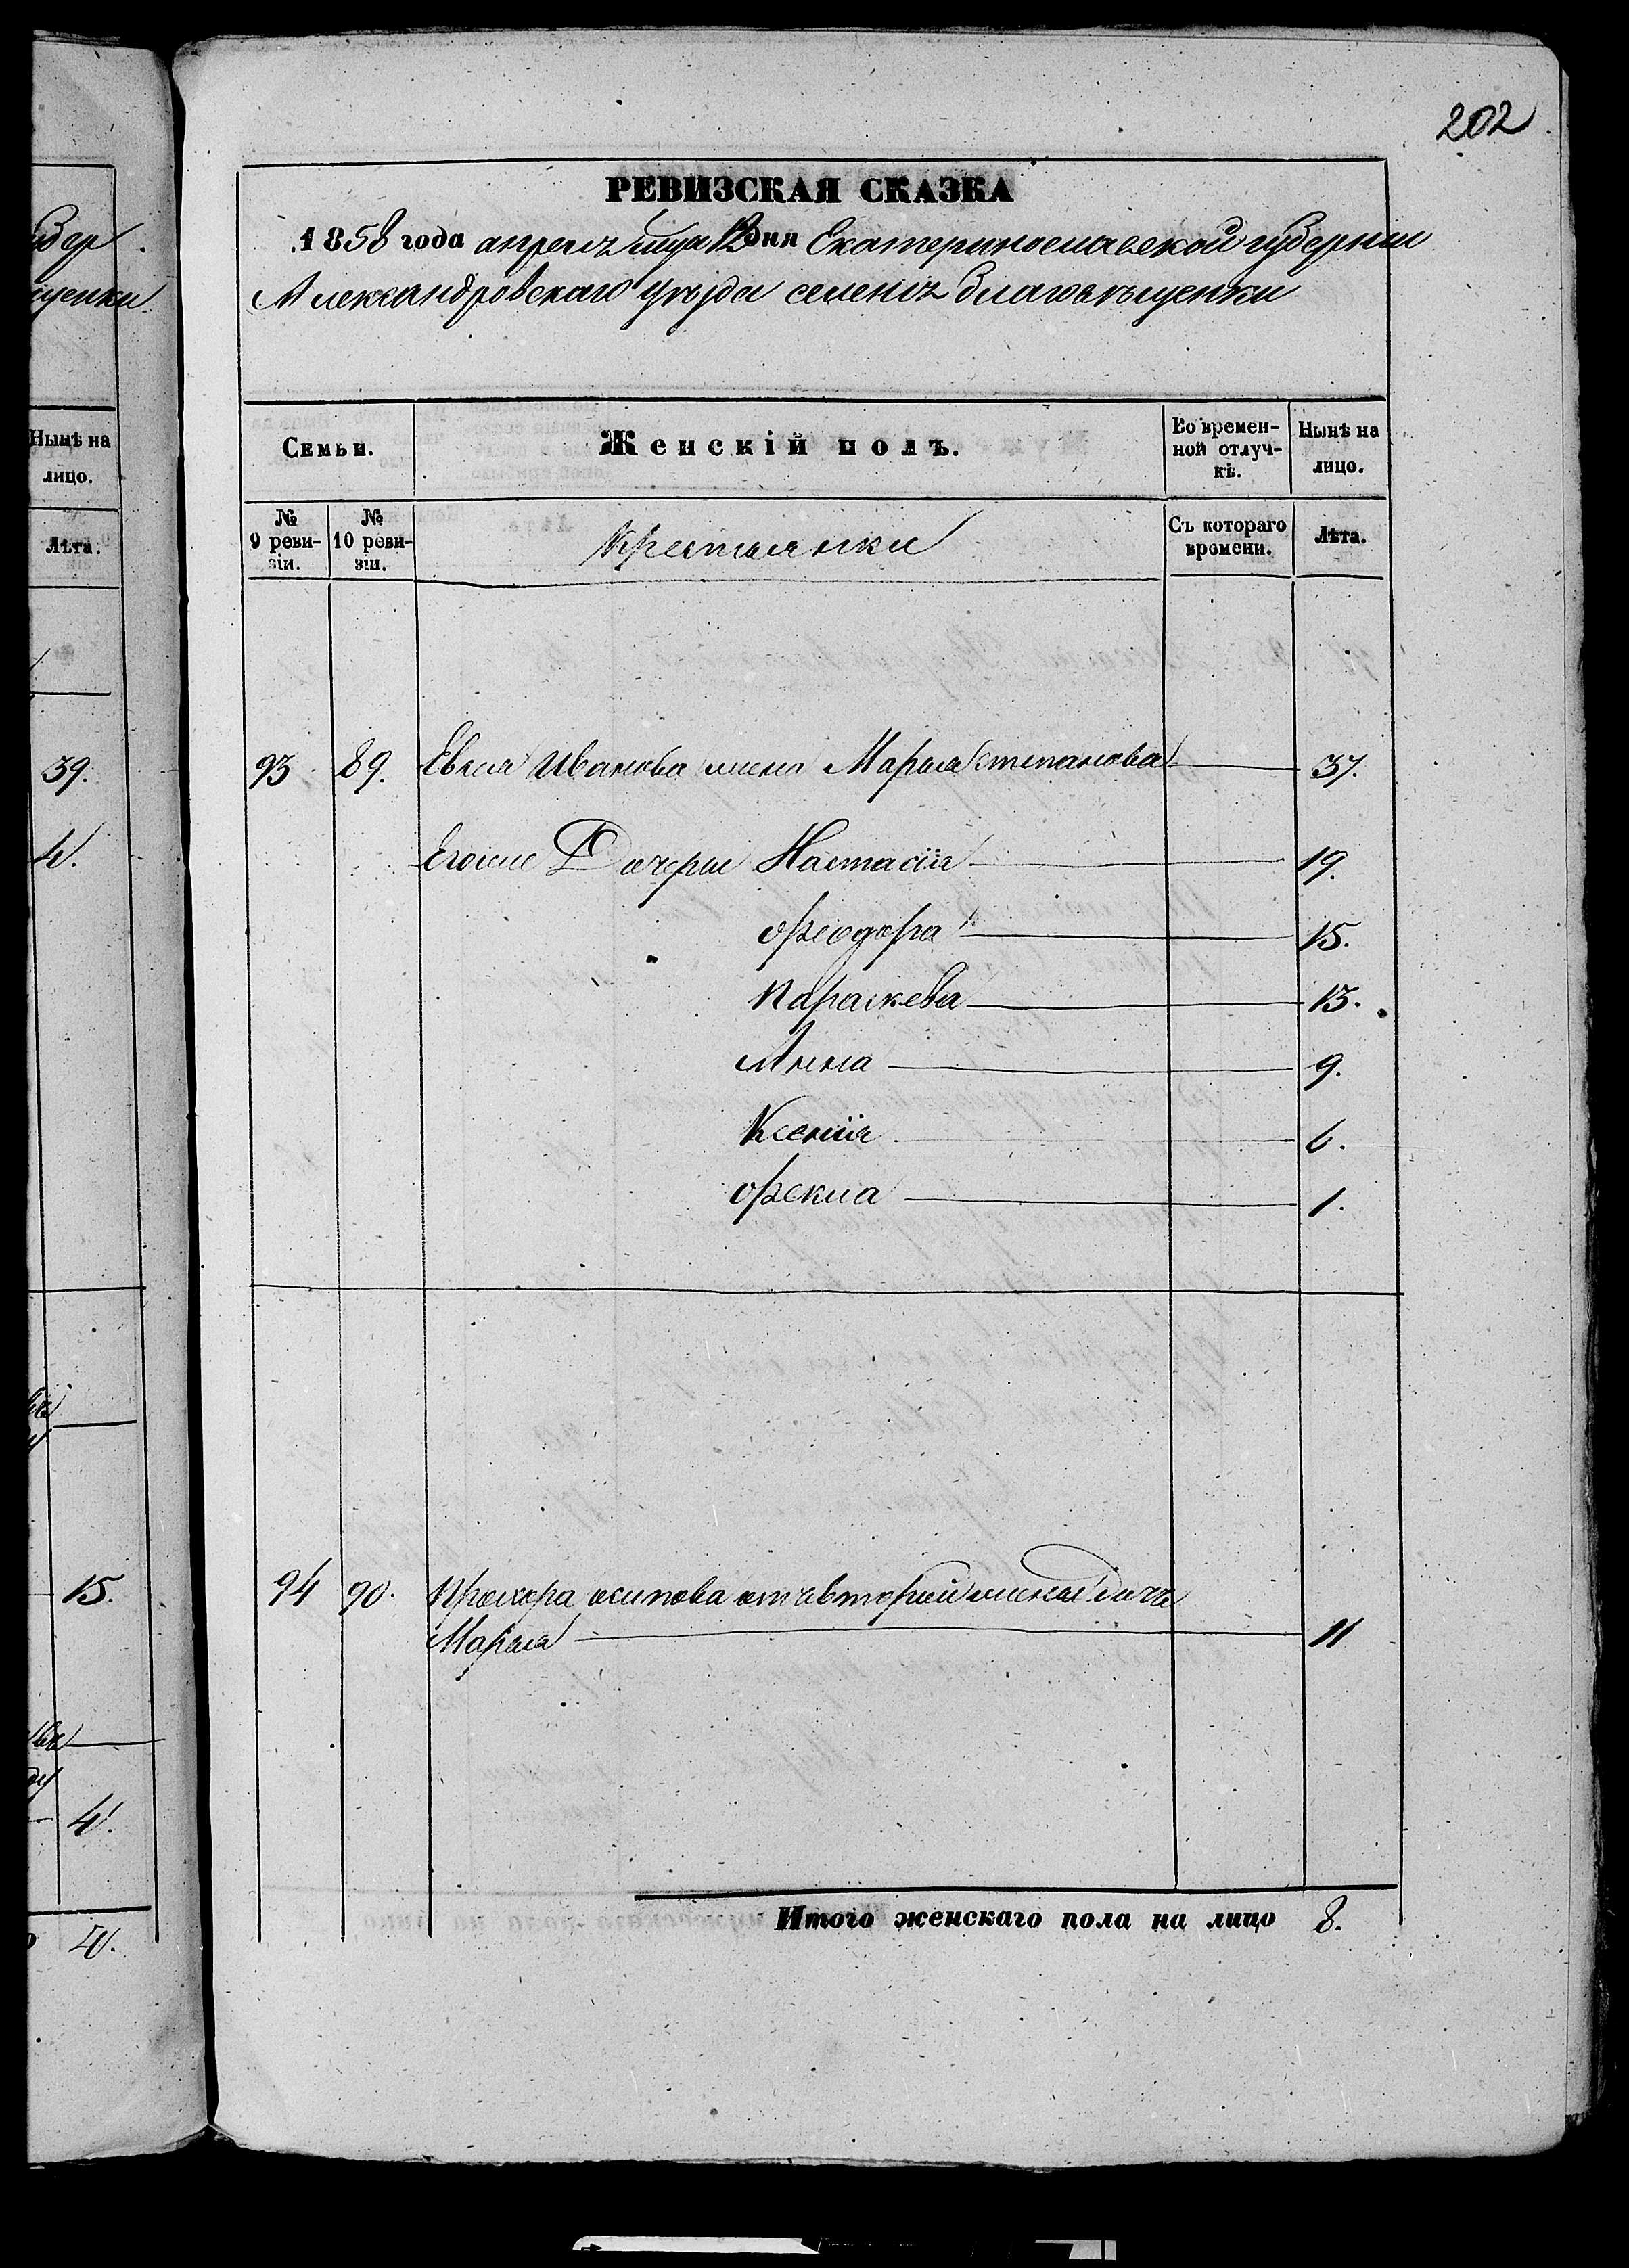 202
РЕВИЗСКАЯ СКАЗКА
1858 года апреля мца 12 дня Екатеринославской губернии
Александровскаго уѣзда селенія Благовѣщенки
Семьи.
Женскій полъ.
Во времен-
ной отлуч-
кѣ.
Нынѣ на
лицо.
№
9 реви-
зіи.
№
10 реви-
зіи.
Крестьянки
Съ котораго
времени.
Лѣта.
93 89. Евсея Иванова жена Марья Степанова 37.
Егоже Дочери Настасія 19.
Феодора 15.
Параскева 13.
Анна 9.
Ксенія 6.
Фекла 1.
94 90. Прохора Осипова отъ второй жены дочь
Марья 11
Итого женскаго пола на лицо 8.
Нынѣ на
лицо.
Лѣта.
39.
4.
15.
4.
4.